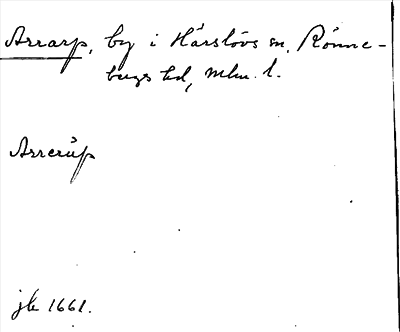 Arrarp, by i Härslövs sn, Rönne-
bergs hd, Mlm. l.
Arrerúp
jb 1661.